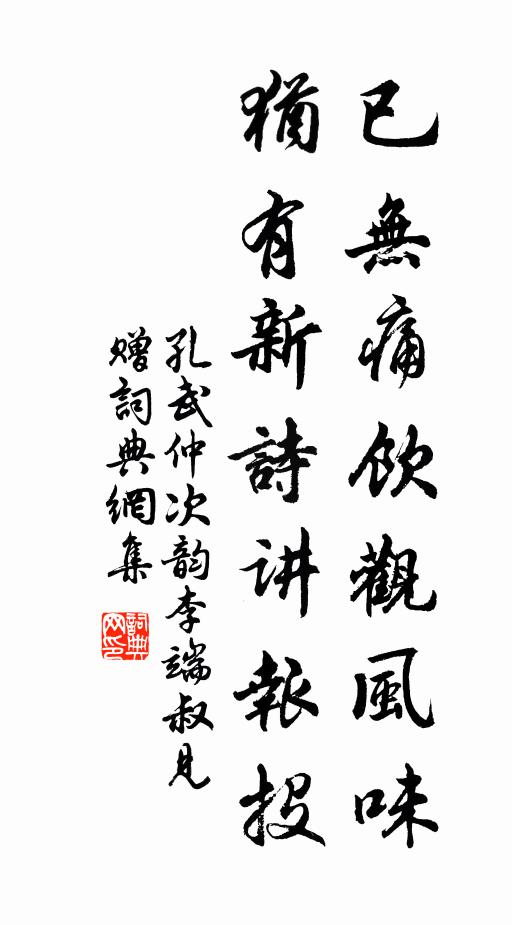 已無痛飲觀風味
猶有新詩讲報投
孔武仲次韵李端叔見
赠詞典網集
詞典网印